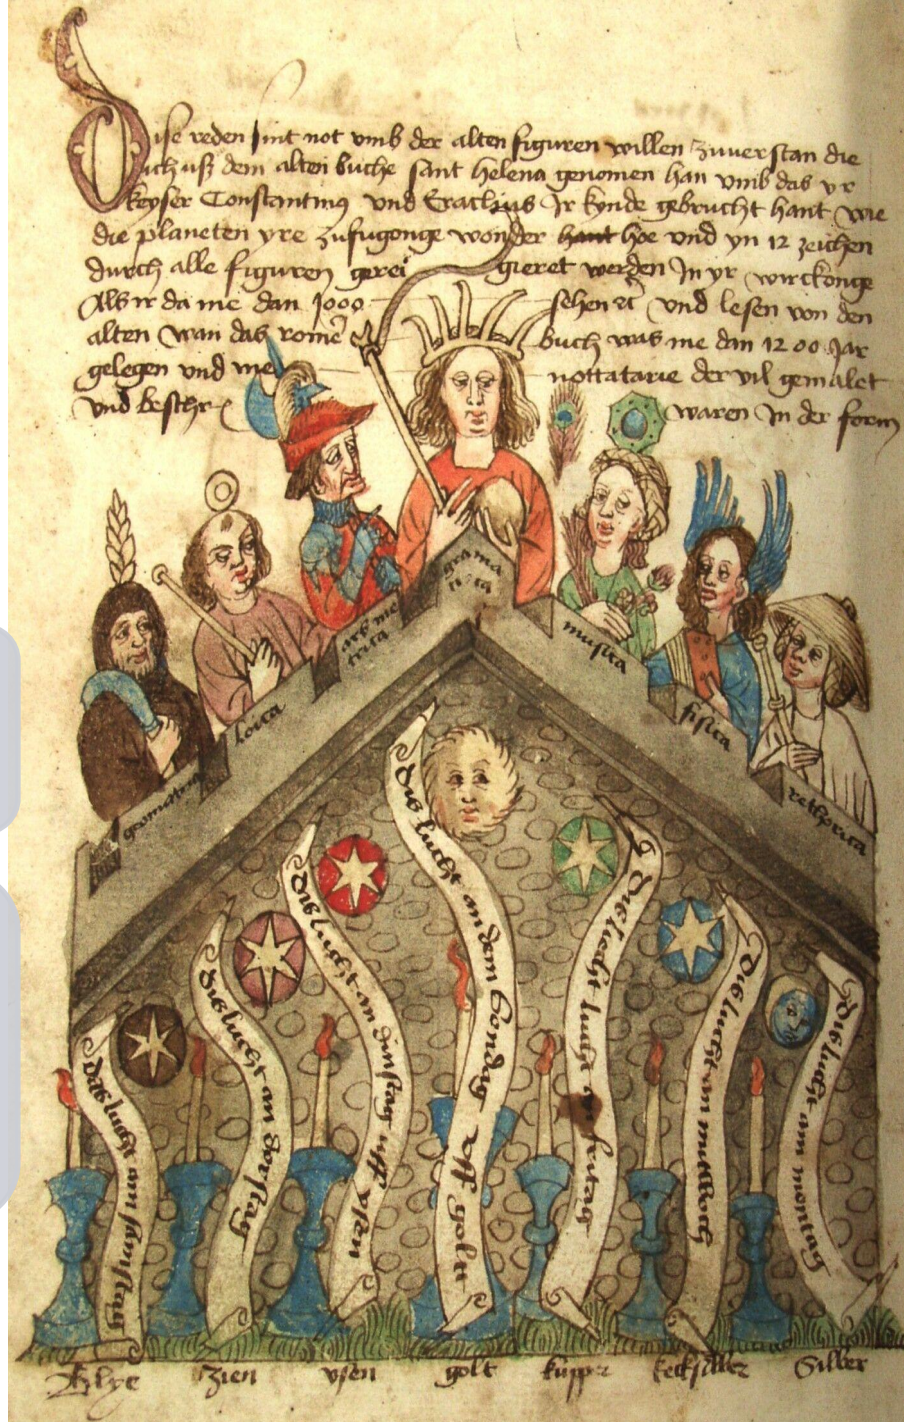 Dise reden sint not vmb der alten figuren willen zuuerstan die
ich vß dem alten buche sant helena genomen han vmb das yr
keyser Constantinus vnd Eraclius Ir kynde gebrucht hant wie
die planeten yre zufugonge wonder hant hoe vnd yn 12 zeichen
durch alle figuren gerei gieret werden In yr wirckonge
Als ir da me dan 1000 sehen vnd lesen von den
alten wan das rome buch was me dan 1200 Jar
gelegen vnd me nottatarie der vil gemalet
vnd beschr waren In der form
grama
tica
ars me
trica
musica
loica
fisica
geometria
rethorica
Dis lucht an dem sondag vff golt
Dis lucht an dinstag vff ysen
Dis lucht an dorstag
Dis lucht vff fritag
Dis lucht an mittwoch
Dis lucht an montag
Das lucht an samstag
Blye zien ysen golt kupper kecksilber Silber